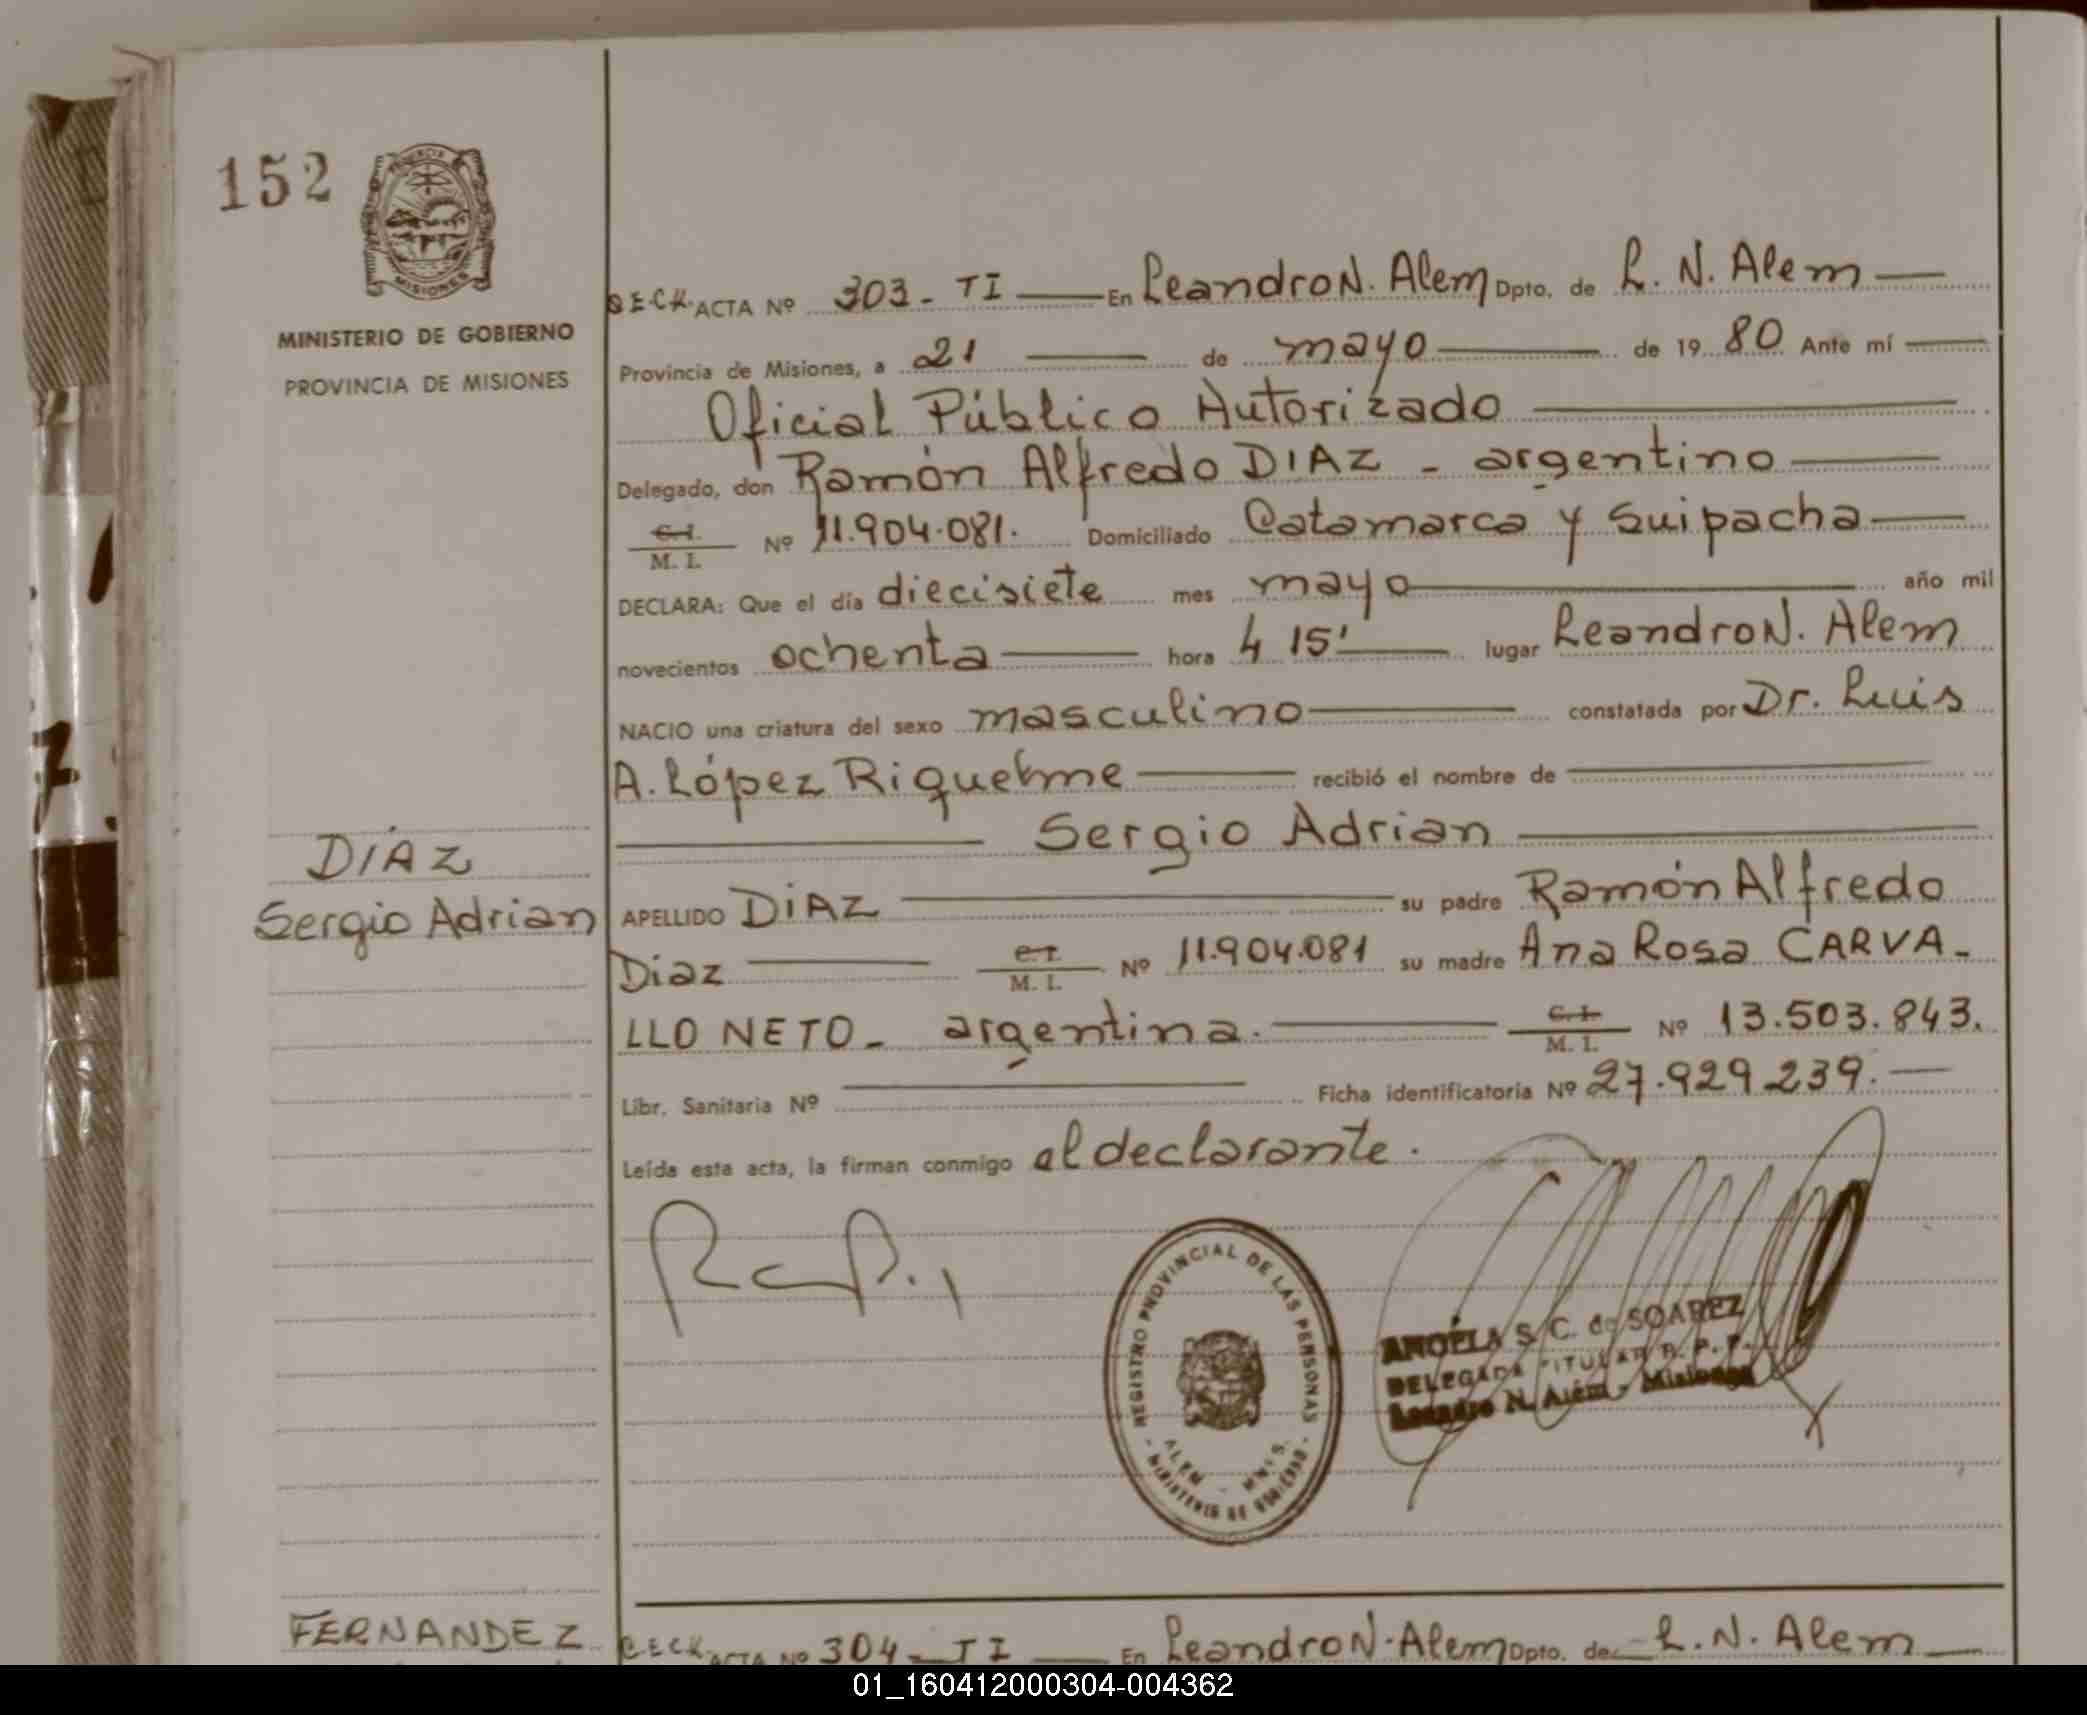 152
PROVINCIA
MISIONES
MINISTERIO DE GOBIERNO
PROVINCIA DE MISIONES
ACTA Nº 303 - TI — En Leandro N. Alem Dpto. de L. N. Alem —
Provincia de Misiones, a 21 — de mayo — de 19 80 Ante mí —
Oficial Público Autorizado —
Delegado, don Ramón Alfredo DIAZ - argentino —
C. I.
M. I. Nº 11.904.081. Domiciliado Catamarca y Suipacha —
DECLARA: Que el día diecisiete mes mayo — año mil
novecientos ochenta — hora 4 15' — lugar Leandro N. Alem
NACIO una criatura del sexo masculino — constatada por Dr. Luis
A. López Riquelme — recibió el nombre de —
— Sergio Adrian —
DÍAZ
Sergio Adrian
APELLIDO DÍAZ — su padre Ramón Alfredo
Díaz — C. I.
M. I. Nº 11.904.081 su madre Ana Rosa CARVA-
LLO NETO - argentina. — C. I.
M. I. Nº 13.503.843.
Libr. Sanitaria Nº — Ficha identificatoria Nº 27.929.239. —
Leída esta acta, la firman conmigo el declarante.
REGISTRO PROVINCIAL DE LAS PERSONAS
ALEM - MNES.
- MINISTERIO DE GOBIERNO -
ANGELA S. C. de SOAREZ
DELEGADA TITULAR R. P. P.
Leandro N. Alem - Misiones
FERNANDEZ
ACTA Nº 304 - TI — En Leandro N. Alem Dpto. de L. N. Alem —
01_160412000304-004362